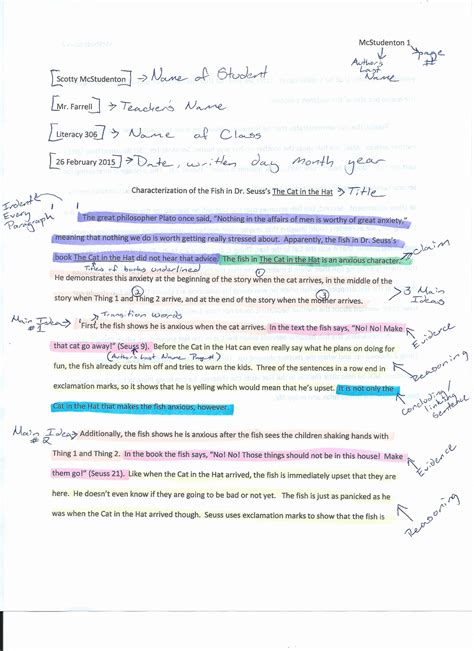 McStudenton 1
Author's Last Name
page #
Scotty McStudenton → Name of Student
Mr. Farrell → Teacher's Name
Literacy 306 → Name of Class
26 February 2015 → Date, written day month year
Characterization of the Fish in Dr. Seuss's The Cat in the Hat → Title
Indent Every Paragraph
The great philosopher Plato once said, "Nothing in the affairs of men is worthy of great anxiety,"
meaning that nothing we do is worth getting really stressed about. Apparently, the fish in Dr. Seuss's
book The Cat in the Hat did not hear that advice. The fish in The Cat in the Hat is an anxious character.
Claim
Titles of books underlined
1
He demonstrates this anxiety at the beginning of the story when the cat arrives, in the middle of the
2
3
3 Main Ideas
story when Thing 1 and Thing 2 arrive, and at the end of the story when the mother arrives.
Main Idea #1
Transition words
First, the fish shows he is anxious when the cat arrives. In the text the fish says, "No! No! Make
Evidence
that cat go away!" (Seuss 9). Before the Cat can even really say what he plans on doing for
(Author's Last Name Page#)
Reasoning
fun, the fish already cuts him off and tries to warn the kids. Three of the sentences in a row end in
exclamation marks, so it shows that he is yelling which would mean that he's upset. It is not only the
Concluding/linking Sentence
Cat in the Hat that makes the fish anxious, however.
Main Idea #2
Additionally, the fish shows he is anxious after the fish sees the children shaking hands with
Thing 1 and Thing 2. In the book the fish says, "No! No! Those things should not be in this house! Make
Evidence
them go!" (Seuss 21). Like when the Cat in the Hat arrived, the fish is immediately upset that they are
here. He doesn't even know if they are going to be bad or not yet. The fish is just as panicked as he
Reasoning
was when the Cat in the Hat arrived though. Seuss uses exclamation marks to show that the fish is